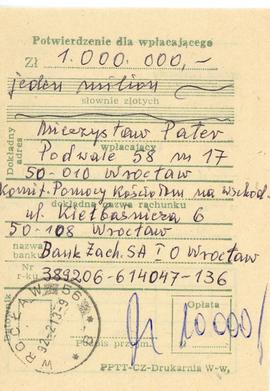 Potwierdzenie dla wpłacającego
Zł 1.000.000,-
jeden milion
słownie złotych
Mieczysław Pater
wpłacający
Dokładny adres
Podwale 58 m 17
50-010 Wrocław
Komit. Pomocy Kościołom na wschod.
dokładna nazwa rachunku
ul. Kiełbaśnicza 6
50-108 Wrocław
nazwa banku
Bank Zach. SA I O Wrocław
Nr r-ku
389206-614047-136
WROCŁAW 56
Opłata
10000
Podpis przyjm.
PPTT-CZ-Drukarnia W-w,